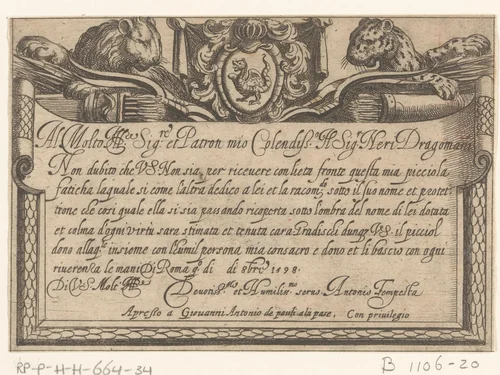 Al Molto Ill.re Sig.re et Patron mio Colendiss.o Il Sig.r Neri Dragomani
Non dubito che V.S. Non sia, per ricevere con lieta fronte questa mia picciola
faticha laquale si come l'altra dedico a lei et la racom. sotto il suo nome et protet
tione che cosi quale ella si sia passando ricoperta sotto lombra del nome di lei dotata
et colma d'ogni virtu sara stimata et tenuta cara Gradischi dunq V.S. il picciol
dono allaq.e insieme con l'humil persona mia consacro e dono et li bascio con ogni
riverensa le mani Di Roma q.o di di 8bre 1598.
Di V.S. Molt Ill.re Devotis.mo et Humilin.mo servo. Antonio Tempesta
Apresso a Giovanni Antonio de pauli ala pase, Con privilegio
RP-P-H-H-664-34
B 1106-20